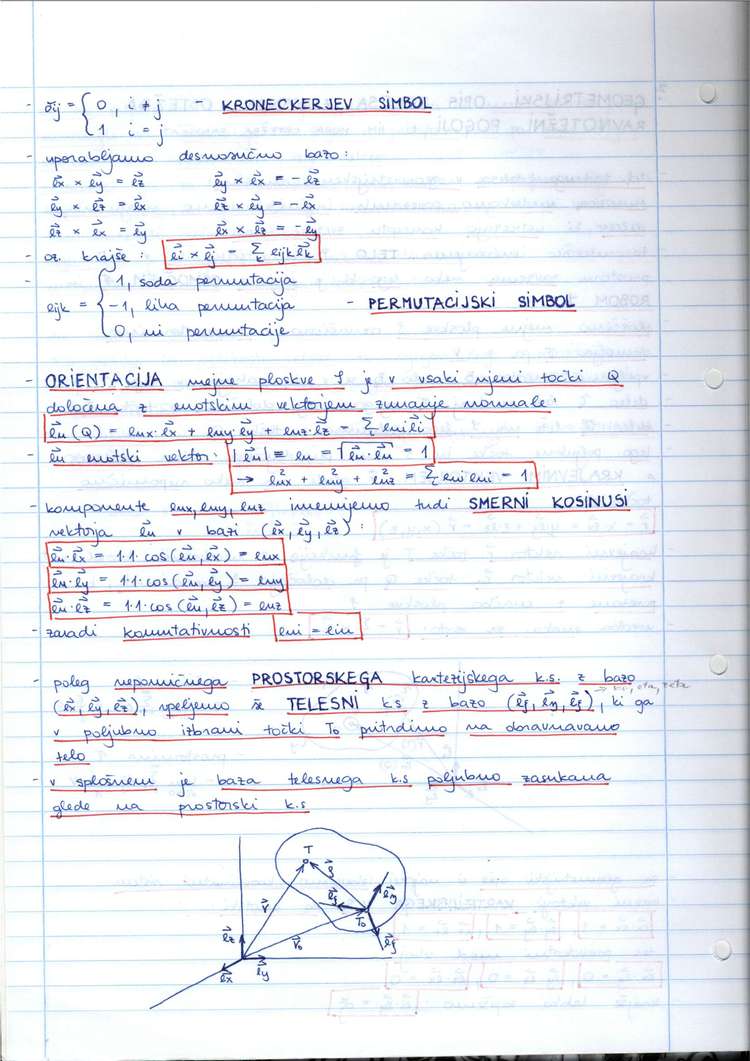 - δij = { 0, i ≠ j - KRONECKERJEV SIMBOL
1 i = j
- uporabljamo desnosučno bazo:
e⃗x × e⃗y = e⃗z e⃗y × e⃗x = -e⃗z
e⃗y × e⃗z = e⃗x e⃗z × e⃗y = -e⃗x
e⃗z × e⃗x = e⃗y e⃗x × e⃗z = -e⃗y
- oz. krajše: e⃗i × e⃗j = Σk eijk e⃗k
1, soda permutacija
eijk = { -1, liha permutacija - PERMUTACIJSKI SIMBOL
0, ni permutacije
- ORIENTACIJA mejne ploskve S je v vsaki njeni točki Q
določena z enotskim vektorjem zunanje normale:
e⃗n (Q) = enx·e⃗x + eny·e⃗y + enz·e⃗z = Σi eni e⃗i
- e⃗n enotski vektor: |e⃗n| ≡ en = √e⃗n·e⃗n = 1
→ enx² + eny² + enz² = Σi eni·eni = 1
- komponente enx, eny, enz imenujemo tudi SMERNI KOSINUSI
vektorja e⃗n v bazi (e⃗x, e⃗y, e⃗z):
e⃗n·e⃗x = 1·1·cos(e⃗n, e⃗x) = enx
e⃗n·e⃗y = 1·1·cos(e⃗n, e⃗y) = eny
e⃗n·e⃗z = 1·1·cos(e⃗n, e⃗z) = enz
- zaradi komutativnosti eni = ein
- poleg nepomičnega PROSTORSKEGA kartezijskega k.s. z bazo
(e⃗x, e⃗y, e⃗z), vpeljemo še TELESNI k.s z bazo (e⃗ξ, e⃗η, e⃗ζ), ki ga
→ ksi, eta, zeta
v poljubno izbrani točki T₀ pritrdimo na obravnavano
telo
- v splošnem je baza telesnega k.s poljubno zasukana
glede na prostorski k.s
T
ρ⃗
e⃗ζ
e⃗η
r⃗
T₀
e⃗z
r⃗₀
e⃗ξ
e⃗x e⃗y